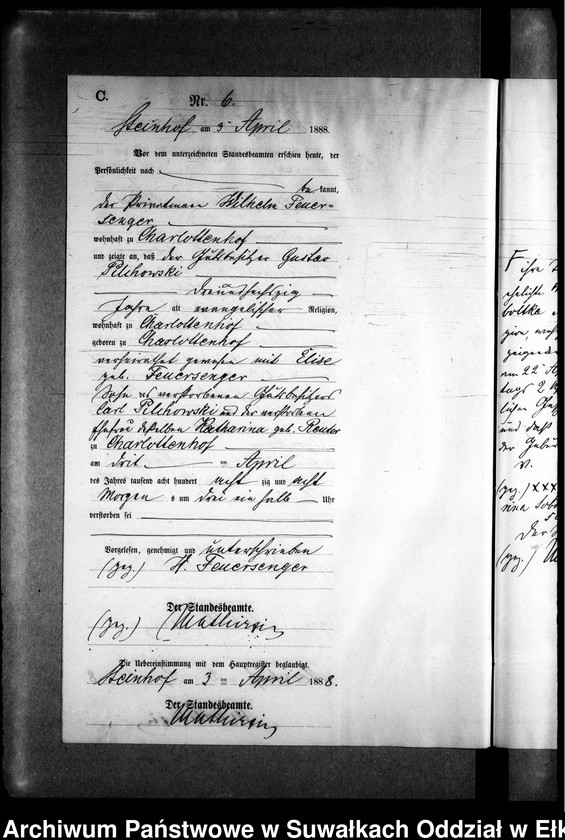 C.
Nr. 6.
Steinhof am 3 April 1888.
Vor dem unterzeichneten Standesbeamten erschien heute, der
Persönlichkeit nach
be kannt,
der Privatmann Wilhelm Feuer-
senger
wohnhaft zu Charlottenhof
und zeigte an, daß der Gutsbesitzer Gustav
Pilchowski
dreiundsechszig
Jahre alt evangelischer Religion,
wohnhaft zu Charlottenhof
geboren zu Charlottenhof
verheirathet gewesen mit Elise
geb. Feuersenger
Sohn des verstorbenen Gutsbesitzers
Carl Pilchowski und der verstorbenen
Ehefrau desselben Katharina geb. Reuter
zu Charlottenhof
am drit ten April
des Jahres tausend acht hundert acht zig und acht
Morgens um drei ein halb Uhr
verstorben sei
Vorgelesen, genehmigt und unterschrieben
(gez.) W. Feuersenger
Der Standesbeamte.
(gez.)
Die Uebereinstimmung mit dem Hauptregister beglaubigt.
Steinhof am 3 ten April 1888.
Der Standesbeamte.
ihre
und daß
der
V.
(gez.) XXX
(gez.)
Archiwum Państwowe w Suwałkach Oddział w Ełk